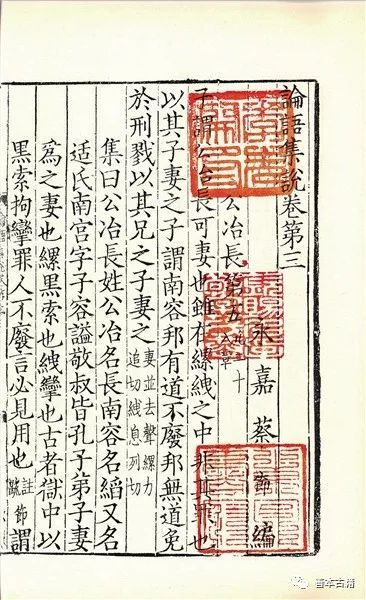 論語集說卷第三
永嘉蔡節編
公冶長第五
子謂公冶長可妻也雖在縲絏之中非其罪也
以其子妻之子謂南容邦有道不廢邦無道免
於刑戮以其兄之子妻之妻並去聲縲力追切絏息列切
集曰公冶長姓公冶名長南容名縚又名
适氏南宮字子容謚敬叔皆孔子弟子妻
爲之妻也縲黑索也絏攣也古者獄中以
黑索拘攣罪人不廢言必見用也註疏節謂
善本古籍